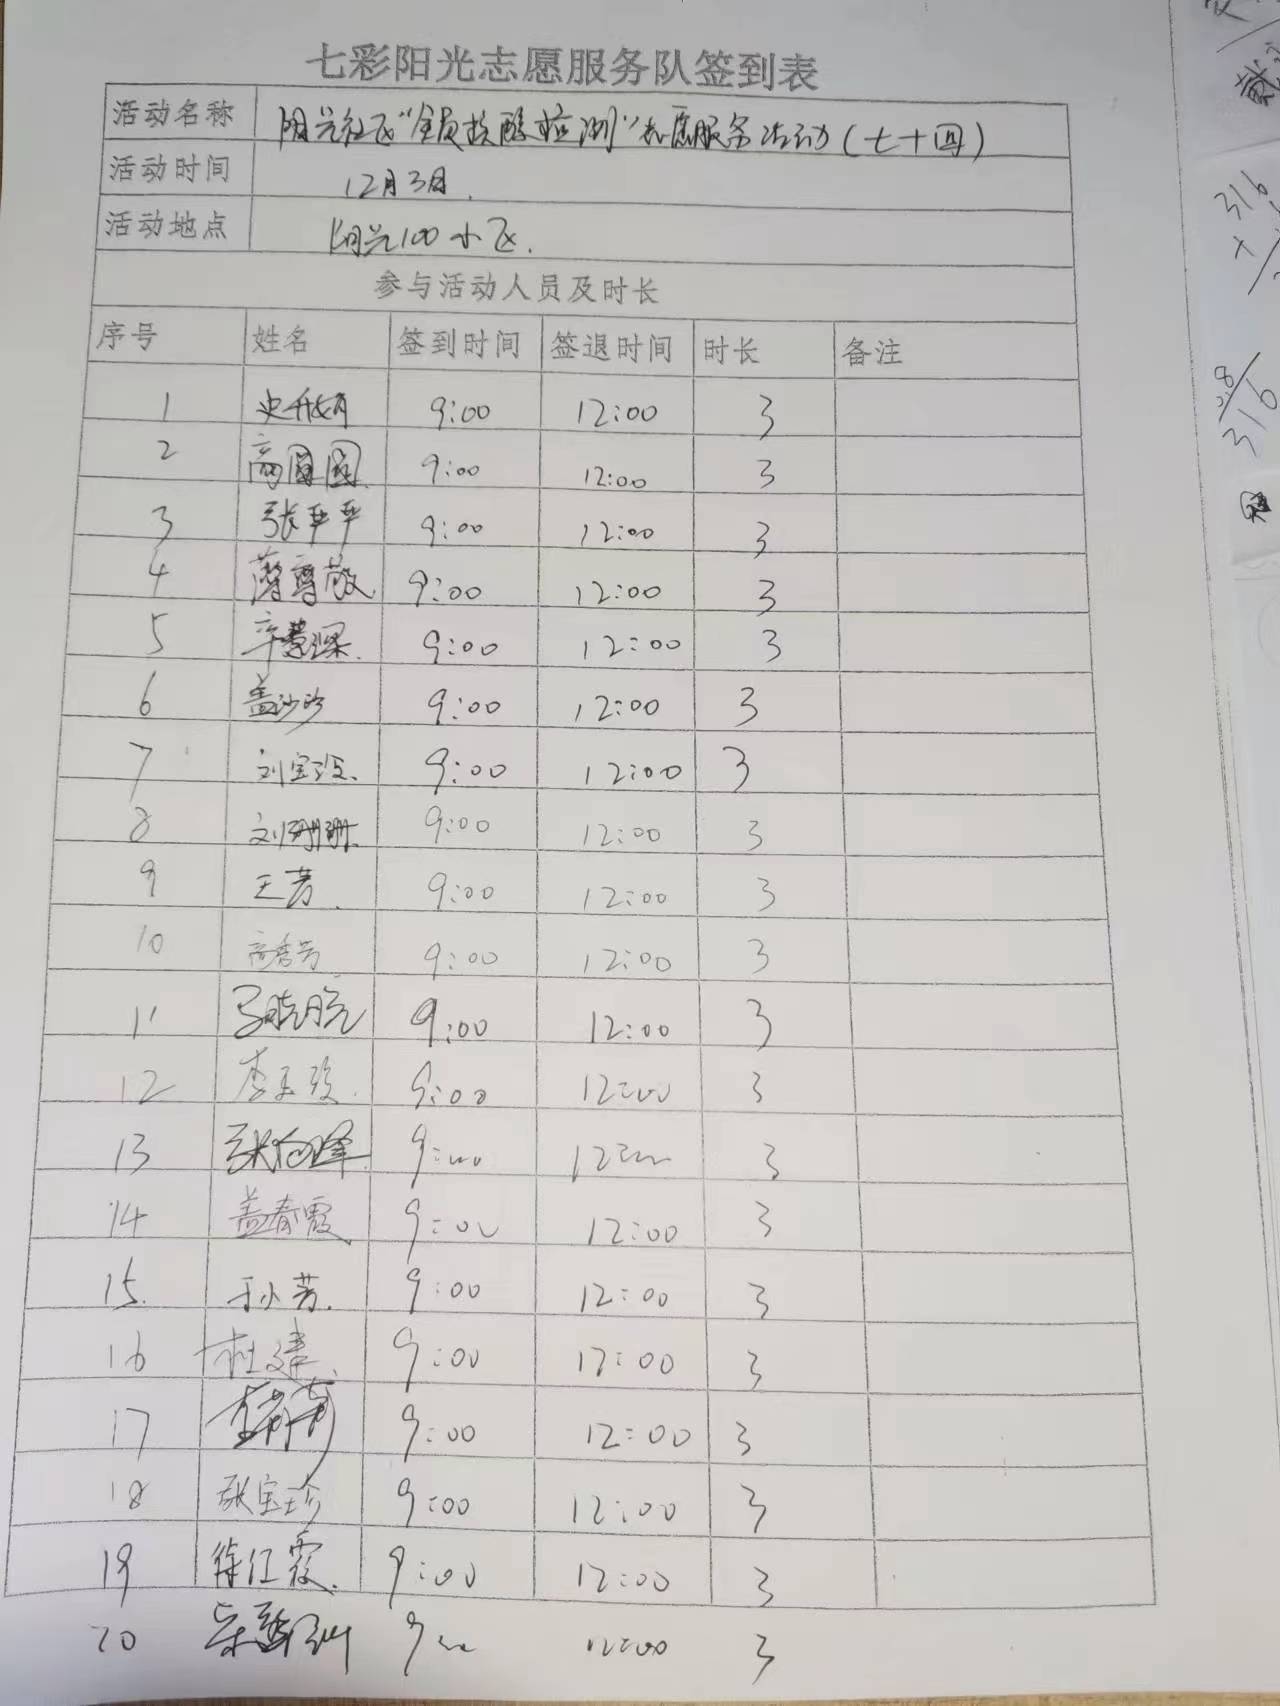 七彩阳光志愿服务队签到表
活动名称 阳光社区“全员核酸检测”志愿服务活动(七十四)
活动时间 12月3日.
活动地点 阳光100小区.
参与活动人员及时长
序号 姓名 签到时间 签退时间 时长 备注
1 9:00 12:00 3
2 高圆圆 9:00 12:00 3
3 张苹苹 9:00 12:00 3
4 9:00 12:00 3
5 辛慧深 9:00 12:00 3
6 盖沙沙 9:00 12:00 3
7 刘宝 9:00 12:00 3
8 刘珊珊 9:00 12:00 3
9 王芳 9:00 12:00 3
10 高秀芳 9:00 12:00 3
11 马晓亮 9:00 12:00 3
12 李玉珍 9:00 12:00 3
13 张 峰 9:00 12:00 3
14 盖春霞 9:00 12:00 3
15 于小芳 9:00 12:00 3
16 杜建 9:00 12:00 3
17 9:00 12:00 3
18 张宝珍 9:00 12:00 3
19 徐江霞 9:00 12:00 3
20 9:00 12:00 3
316
316